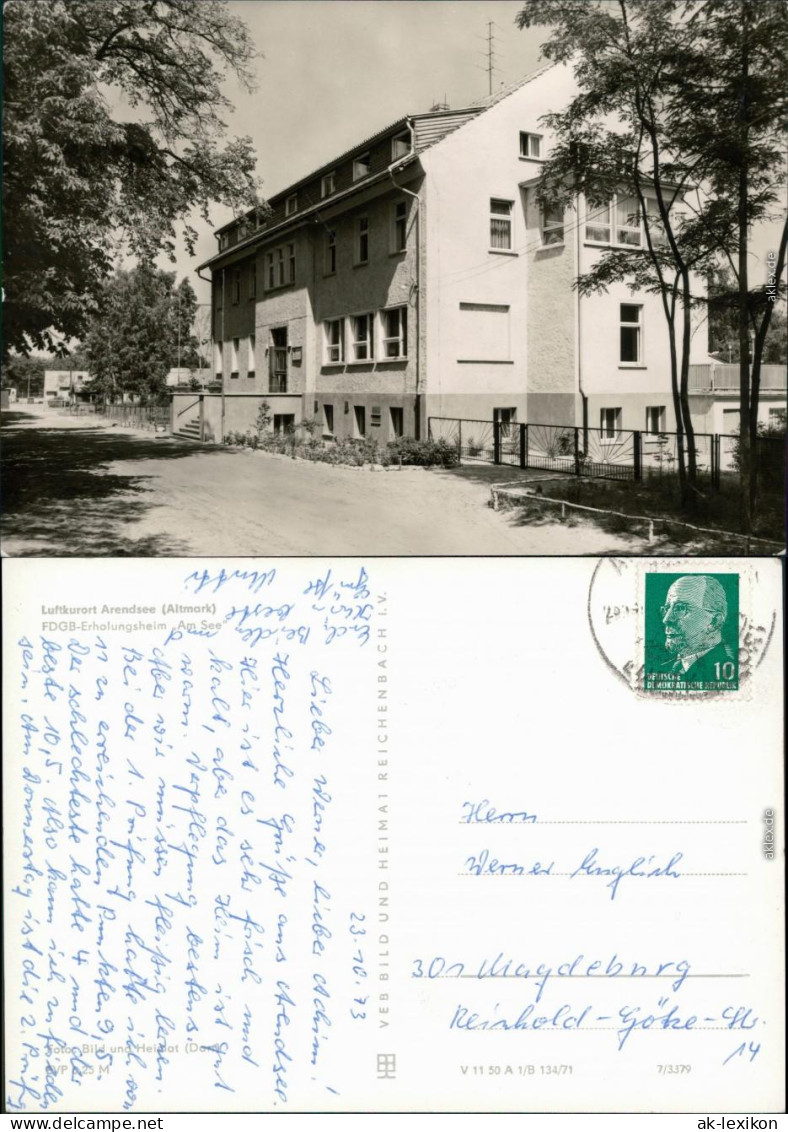 aklex.de
Luftkurort Arendsee (Altmark)
FDGB-Erholungsheim „Am See“
23.10.73
Lieber Werner, lieber Achim!
Herzliche Grüße aus Arendsee.
Hier ist es sehr frisch und
kalt, aber das Heim ist gut
warm. Verpflegung bestens.
Aber wir müssen fleißig lernen.
Bei der 1. Prüfung hatte ich von
11 zu erreichenden Punkten 9,5.
Der schlechteste hatte 4 und der
beste 10,5. Also kann ich zufrieden
sein. Am Donnerstag ist die 2. Prüfg
Euch Beiden
beste
Grüße
Foto: Bild und Heimat
EVP 0,25 M
VEB BILD UND HEIMAT REICHENBACH I. V.
V 11 50 A 1/B 134/71
7/3379
10
DEUTSCHE
DEMOKRATISCHE REPUBLIK
Herrn
Werner Englich
301 Magdeburg
Reinhold-Götze-Str.
14
aklex.de
ak-lexikon